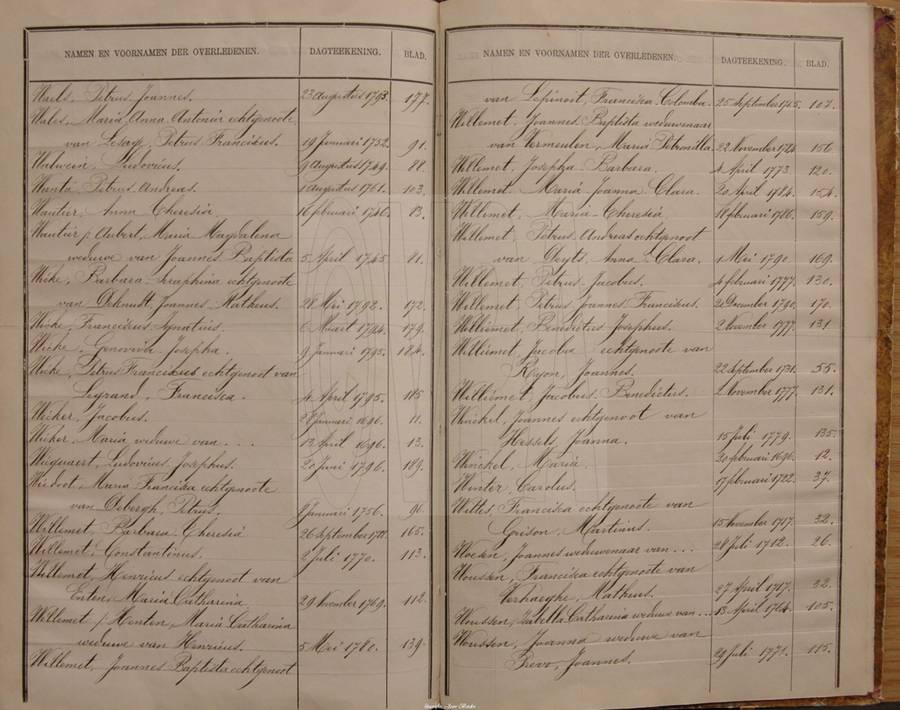 NAMEN EN VOORNAMEN DER OVERLEDENEN. DAGTEEKENING. BLAD.
Waels, Petrus Joannes. 23 Augustus 1793. 177.
Wales, Maria Anna Antonia echtgenoote
van Lesage, Petrus Franciscus. 19 Januari 1752. 91.
Walwein, Ludovicus. 9 Augustus 1749. 88.
Wanta, Petrus Andreas. 1 Augustus 1761. 103.
Wautier, Anna Theresia. 16 februari 1746. 83.
Wautier / Aubert, Maria Magdalena
weduwe van Joannes Baptista 5 April 1745 81.
Wicke, Barbara Seraphina echtgenoote
van Deknudt, Joannes Matheus. 28 Mei 1792. 172.
Wicke, Franciscus Ignatius. 6 Maart 1794. 179.
Wicke, Genovieva Josepha. 9 Januari 1795. 184.
Wicke, Petrus Franciscus echtgenoot van
Legrand, Francisca. 4 April 1795. 185.
Wicker, Jacobus. Januari 1696. 11.
Wicker, Maria weduwe van ... 13 April 1696. 13.
Ludovicus Josephus. 20 Juni 1796. 189.
Maria Francisca echtgenoote
van Debergh, Petrus. Januari 1756. 96.
Willemet, Barbara Theresia 26 September 165.
Willemet, Constantinus. 2 Juli 1770. 113.
Willemet, Henricus echtgenoot van
Enten, Maria Catharina 29 November 1769. 112.
Willemet / Henten, Maria Catharina
weduwe van Henricus. 5 Mei 1780. 139.
Willemet, Joannes Baptista echtgenoot
NAMEN EN VOORNAMEN DER OVERLEDENEN. DAGTEEKENING. BLAD.
van Lepinoit, Francisca Colomba. 25 September 107.
Willemet, Joannes Baptista weduwenaar
van Vermeulen, Maria Petronilla 22 November 156
Willemet, Josepha Barbara. 4 April 1773 120.
Willemet, Maria Joanna Clara. 20 April 1784. 154.
Willemet, Maria-Theresia 18 februari 1786. 159.
Willemet Petrus Andreas echtgenoot
van Deyts, Anna Clara. 1 Mei 1790 169.
Willemet, Petrus Jacobus. 4 februari 1777. 130.
Willemet, Petrus Joannes Franciscus. 2 December 1790. 170.
Williemet, Benedictus Josephus. 2 November 1777. 131
Williemet, Jacoba echtgenoote van
Joannes. 22 September 1731. 55.
Williemet, Jacobus Benedictus. 2 November 1777. 131.
Winckel, Joannes echtgenoot van
Hessels, Joanna. 15 Juli 1779. 135.
Winckel, Maria. 20 februari 1696. 12.
Winter, Carolus. 17 februari 1722. 37.
Francisca echtgenoote van
Grison, Martinus. 15 November 1717. 32.
Woesen, Joannes weduwenaar van ... 28 Juli 1712. 26.
Woussen, Francisca echtgenoote van
Verhaeghe, Matheus. 27 April 1717. 32.
Woussen, Isabella Catharina weduwe van ... 13 April 1764. 105.
Woussen, Joanna weduwe van
Joannes. 29 Juli 1771. 115.